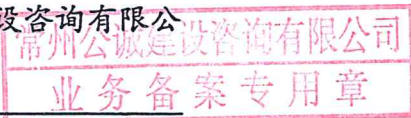 设咨询有限公
常州公诚建设咨询有限公司
业务备案专用章